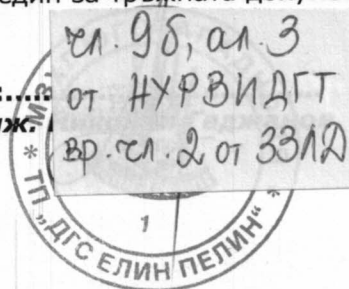 един за тръжната
чл. 9б, ал. 3
от НУРВИДГТ
вр. чл. 2 от ЗЗЛД
1
* ТП „ДГС ЕЛИН ПЕЛИН“ *